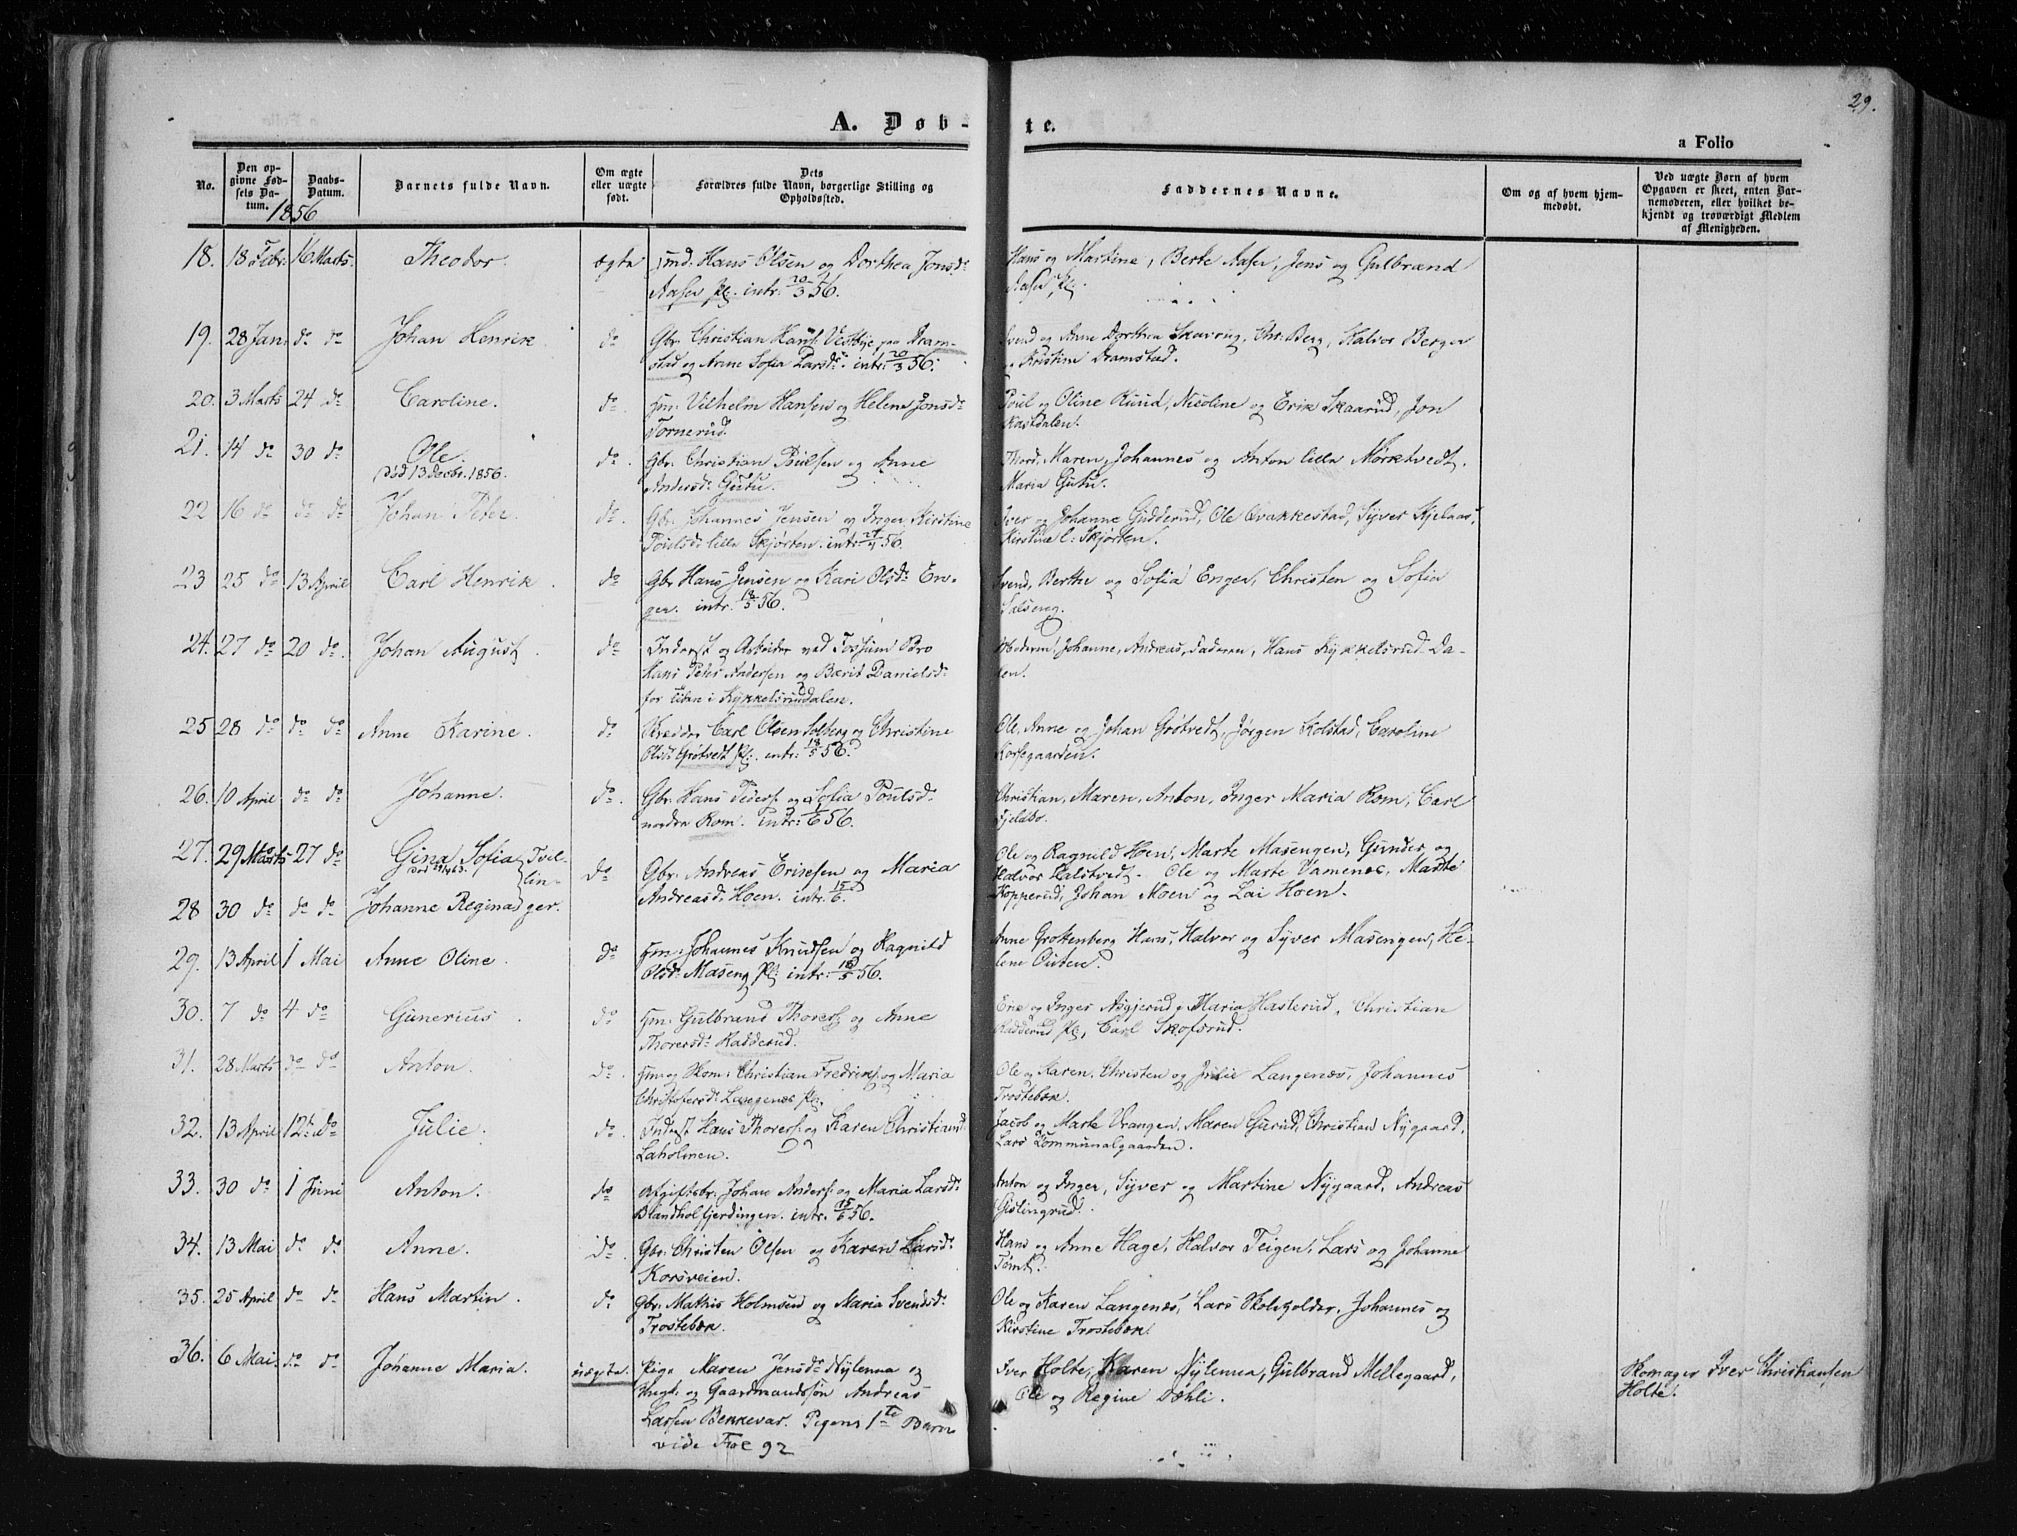 29.
A. Døb-
te.
a Folio
No.
Den opgivne Fødsels Datum.
Daabs-Datum.
Barnets fulde Navn.
Om ægte eller uægte født.
Dets Forældres fulde Navn, borgerlige Stilling og Opholdssted.
Faddernes Navne.
Om og af hvem hjemmedøbt.
Ved uægte Børn af hvem Opgaven er skeet, enten Barnemoderen, eller hvilket bekjendt og troværdigt Medlem af Menigheden.
1856
18. 18 Febr. 16 Marts. Theodor. ægte Hans Olsen og Dorthea Jonsd:
Aaser Pl. intr: 20/3 56.
Hans og Martine, Berte Aaser, Jens og Gulbrand
Aaser Pl.
19. 28 Jan: do do Johan Henrik do Gbr. Christian Hans. Vestbye paa Dram-
stad og Anne Sofia Larsd: intr: 20/3 56.
Svend og Anne Dorthea Skavrug, Chr: Berg, Halvor Berger
og Kristine Dramstad.
20. 3 Marts 24 do Caroline. do. Hm: Vilhelm Hansen og Helene Jonsd:
Tornerud.
Poul og Oline Ruud, Nicoline og Erik Skaarud, Jon
Kastdalen.
21. 14 do 30 do Ole. do. Gbr. Christian Poulsen og Anne
død 13 Decbr. 1856.
Andersd: Gutu.
Thord, Maren, Johannes og Anton lille Mørktvedt,
Maria Gutu.
22 16 do do do Johan Peter do. Gbr. Johannes Jensen og Inger Kirstine
Poulsd: lille Skjørten. intr:
Iver og Johanne Gudderud, Ole Ovakkestad, Syver Kjelaas,
Kirstine l: Skjørten.
23 25 do 13 April Carl Henrik. do Gbr Hans Jensen og Kari Olsd: En-
ger. intr. 18/5 56.
Svend, Berthe og Sofia Enger, Christen og Sofia
24. 27 do 20 do. Johan August do Inderst og Arbeider ved Fossum Bro
Hans Peter Andersen og Berit Danielsd:
for tiden i Kykkelsruddalen.
Moderen, Johanne, Andreas, Faderen, Hans Kykkelsrud Da-
len.
25 28 do do do Anne Karine. do Carl Olsen Solberg og Christine
Olsd: Grøtvedt Pl: intr: 18/5 56.
Ole, Anne og Johan Grøtvedt, Jørgen Kolstad, Caroline
Korsegaarden.
26. 10 April do do Johanne. do. Gbr. Hans Peders. og Sofia Poulsd:
nordre Rom. intr: 1/6 56.
Christian, Maren, Anton, Inger Maria Rom, Carl
Fjeldbo.
27. 29 Marts 27 do Gina Sofia Tvil- do Gbr. Andreas Ericksen og Maria
lin-
Andreasd: Hoen. intr. 15/6.
Ole og Ragnild Hoen, Marte Masengen, Gunder og
Halvor Halstvedt. Ole og Marte Vamenes, Marte
28 30 do do do Johanne Regina ger.
Kopperud, Johan Moen og Lai Hoen.
29. 13 April 1 Mai Anne Oline. do Hm: Johannes Knudsen og Ragnild
Olsd: Maseng Pl: intr: 18/5 56.
Anne Grottenberg Hans, Halvor og Syver Masengen, He-
lene Outen.
30. 7 do 4 do Gunerius. do Hm: Gulbrand Thorers. og Anne
Thorersd: Kadderud.
Eric og Inger Nygjerud, Maria Hasterud, Christian
Kadderud Pl, Carl Skofsrud.
31. 28 Marts do do Anton. do. Hm og Christian Fredriks. og Maria
Christofersd: Langenæs Pl.
Ole og Karen, Christen og Julie Langenæs, Johannes
Trostebæk.
32. 13 April 12te do Julie. do. Inderst Hans Thorers. og Karen Christiansd:
Laholmen.
Jacob og Marte Vrangen, Maren Gurud, Christian Nygaard,
Lars Communalgaarden.
33. 30 do 1 Juni Anton. do Afgiftsbr. Johan Anders. og Maria Larsd:
Blandholfjerdingen. intr. 15/6 56.
Anton og Inger, Syver og Martine Nygaard, Andreas
Gislingrud.
34. 13 Mai do do Anne. do. Gbr. Christen Olsen og Karen Larsd:
Korsveien.
Hans og Anne Hage, Halvor Teigen, Lars og Johanne
Tomt.
35. 25 April do do Hans Martin. do Gbr: Mathis Holmsen og Maria Svendsd:
Trostebæk.
Ole og Karen Langenæs, Lars Johannes og
Kirstine Trostebæk.
36. 6 Mai do do Johanne Maria. uægte. Pige Maren Jensd: Nylenna og
Ungk: og Gaardmandssøn Andreas
Larsen Bekkevar. Pigens 1te Barn
vide Fol 92
Iver Holte, Karen Nylenna, Gulbrand Mellegaard,
Ole og Regine Dæhli.
Skomager Iver Christiansen
Holte.